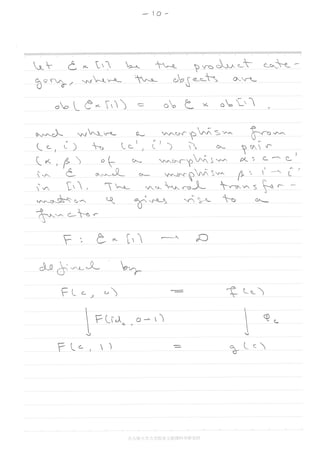 -10-
Let C × [1] be the product cate-
gory, where the objects are
ob(C × [1]) = ob C × ob [1],
and where a morphism from
(c, i) to (c', i') is a pair
(α, β) of a morphism α: c → c'
in C and a morphism β: i → i'
in [1]. The natural transfor-
mation φ gives rise to a
functor
F: C × [1] → D
defined by
F(c, 0) = f(c)
↓ F(id, 0→1) ↓ φ_c
F(c, 1) = g(c)